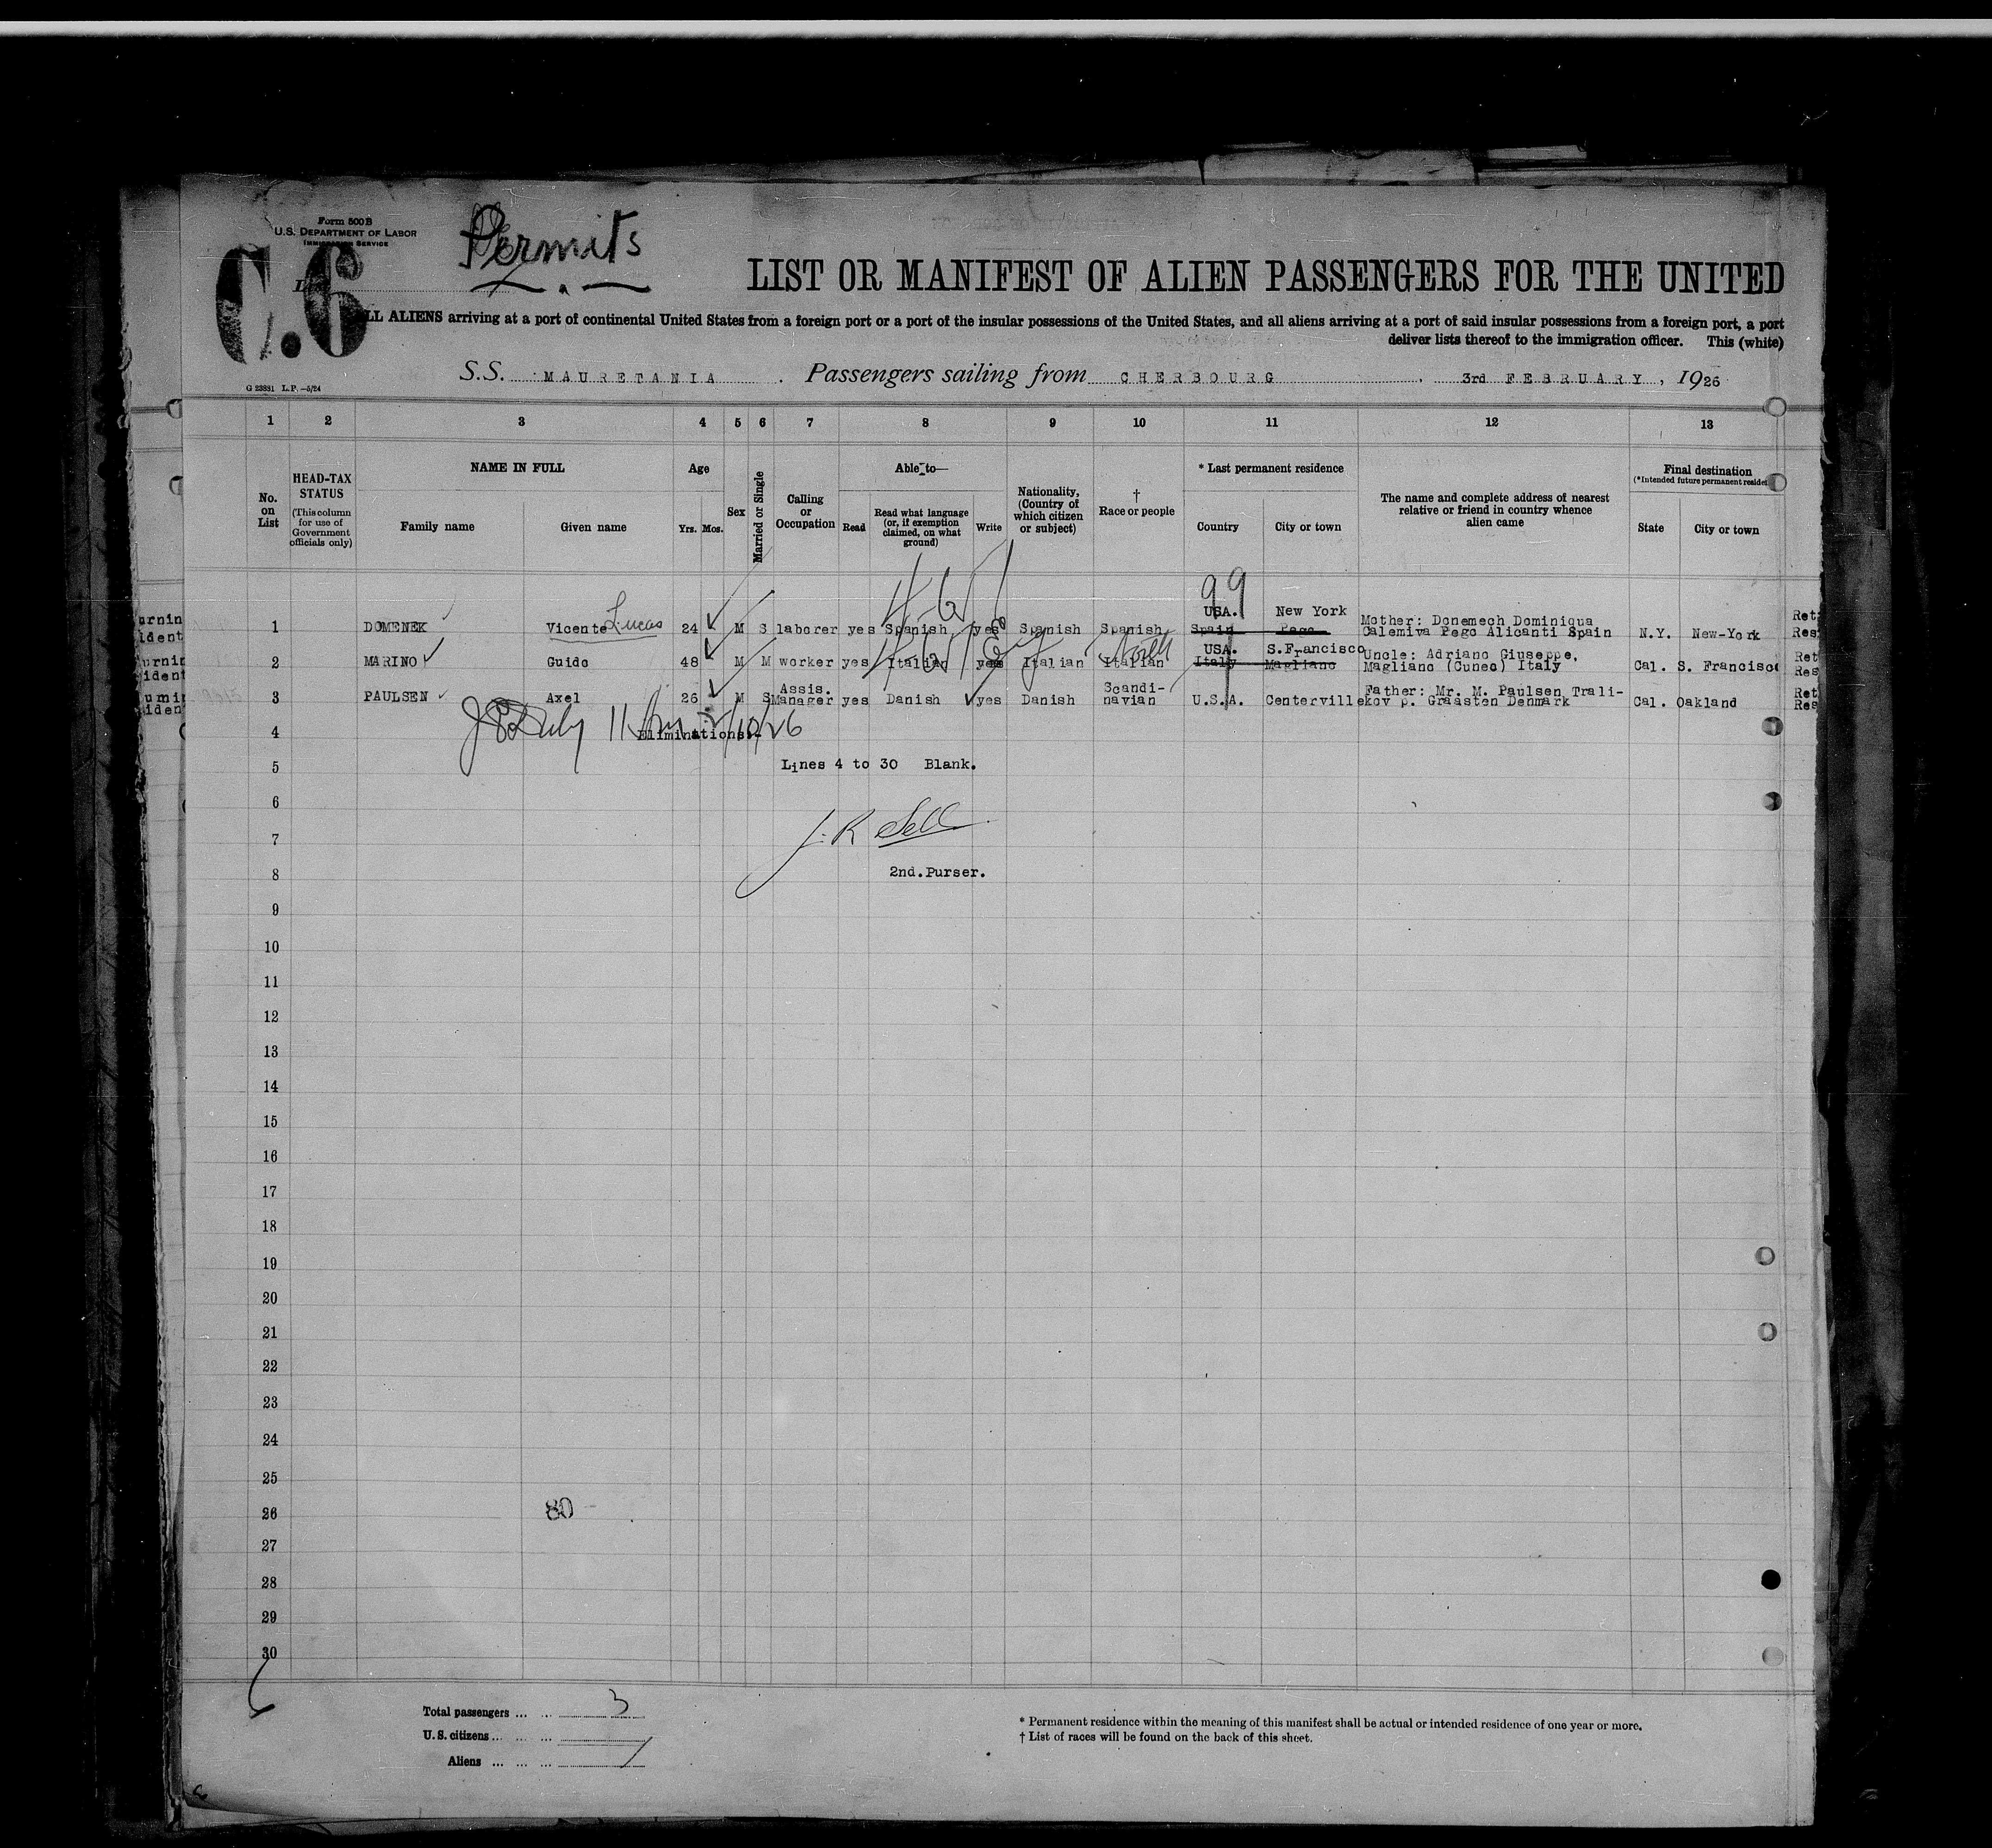 Form 500 B
U.S. DEPARTMENT OF LABOR
IMMIGRATION SERVICE
Permits
C.6
LIST OR MANIFEST OF ALIEN PASSENGERS FOR THE UNITED
LL ALIENS arriving at a port of continental United States from a foreign port or a port of the insular possessions of the United States, and all aliens arriving at a port of said insular possessions from a foreign port, a port
deliver lists thereof to the immigration officer. This (white)
G 23831 L.P.—5/24
S.S. MAURETANIA. Passengers sailing from CHERBOURG. 3rd FEBRUARY, 1926
1 2 3 4 5 6 7 8 9 10 11 12 13
No. on List
HEAD-TAX STATUS (This column for use of Government officials only)
NAME IN FULL
Family name Given name
Age
Yrs. Mos.
Sex
Married or Single
Calling or Occupation
Able to—
Read Read what language (or, if exemption claimed, on what ground) Write
Nationality, (Country of which citizen or subject)
† Race or people
* Last permanent residence
Country City or town
The name and complete address of nearest relative or friend in country whence alien came
Final destination
(*Intended future permanent resider
State City or town
99
4-6
USA. New York
1 DOMENEK Vicente Lucas 24 M S laborer yes Spanish yes Spanish Spanish Spain Pego Mother: Donemech Dominiqua
Calemiva Pego Alicanti Spain N.Y. New-York
USA. S.Francisco
2 MARINO Guido 48 M M worker yes Italian yes Italian Italian North Italy Magliano Uncle: Adriano Giuseppe,
Magliano (Cuneo) Italy Cal. S. Francisco
3 PAULSEN Axel 26 M S Assis. Manager yes Danish yes Danish Scandi-navian U.S.A. Centerville Father: Mr. M. Paulsen Trali-
kov p. Graasten Denmark Cal. Oakland
4 Eliminations:- 11 Am 2/10/26
5 Lines 4 to 30 Blank.
6
7 J. R Sell
8 2nd.Purser.
9
10
11
12
13
14
15
16
17
18
19
20
21
22
23
24
25
26 80
27
28
29
30
Total passengers ... ... 3
U.S. citizens ... ... ...
Aliens ... ... ...
* Permanent residence within the meaning of this manifest shall be actual or intended residence of one year or more.
† List of races will be found on the back of this sheet.